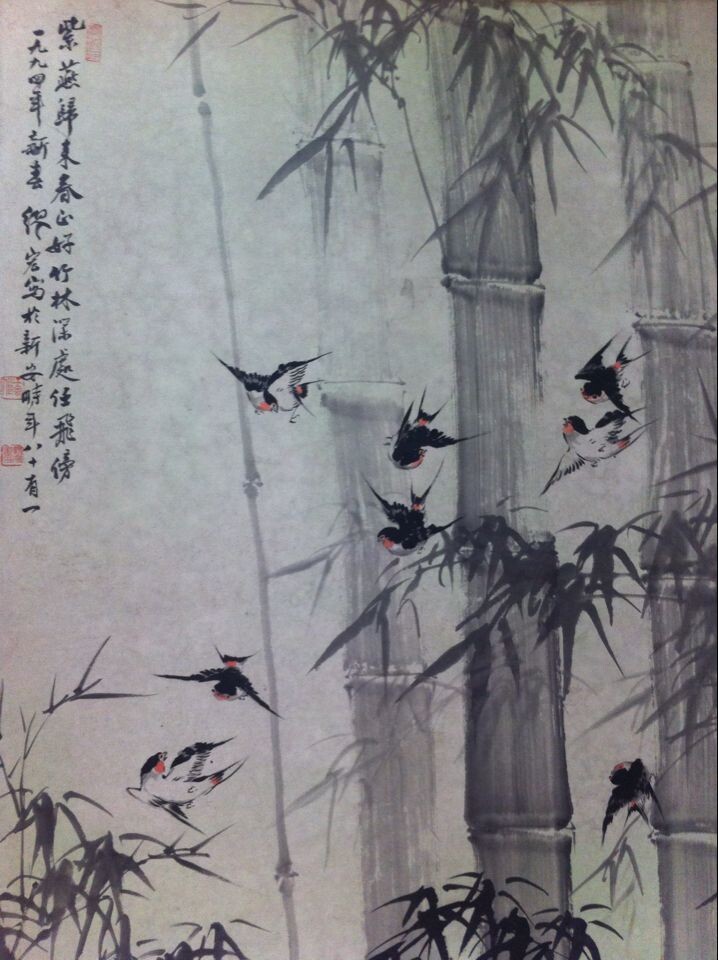 紫燕歸来春正好竹林深處任飛傍
一九九四年新春繆宏寫於新安時年八十有一